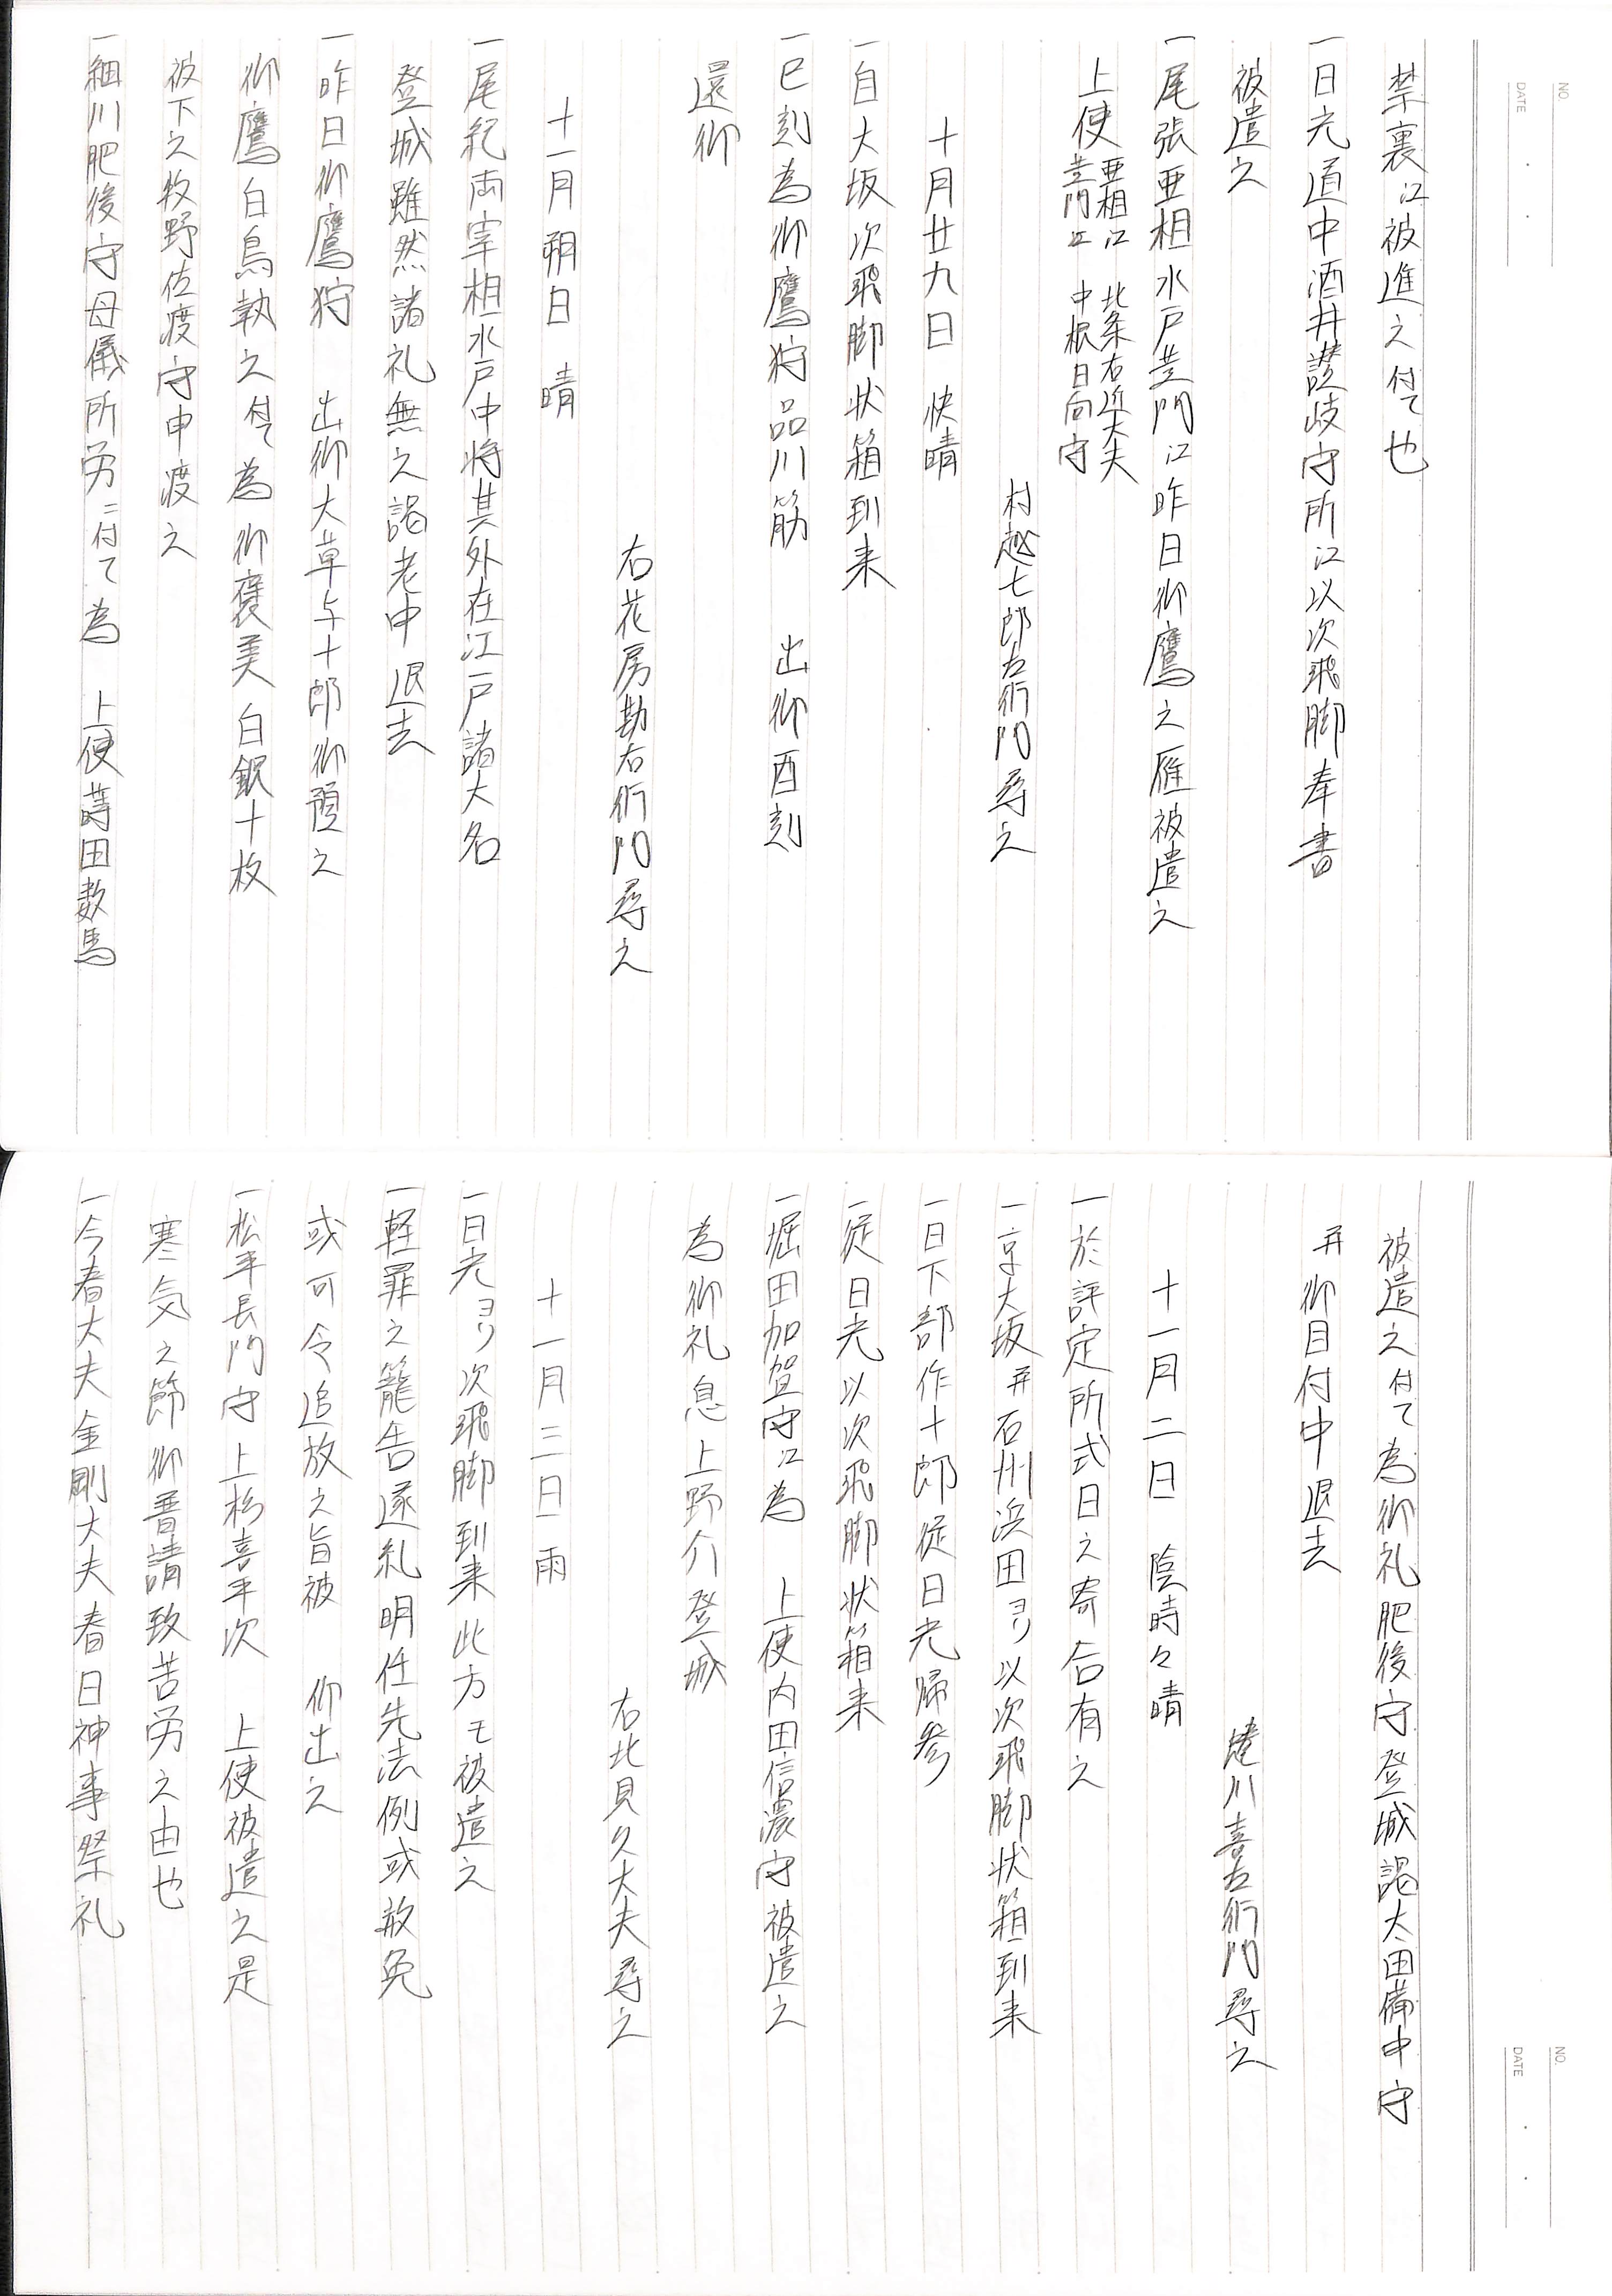 NO.
DATE
禁裏江被進之付て也
一日光道中酒井讃岐守所江以次飛脚奉書
被遣之
一尾張亜相水戸黄門江昨日御鷹之雁被遣之
上使 亜相江 北条右近大夫
黄門江 中根日向守
村越七郎左衛門尋之
十月廿九日 快晴
一自大坂次飛脚状箱到来
一巳刻為御鷹狩品川筋 出御酉刻
還御
右花房勘右衛門尋之
十一月朔日 晴
一尾紀両宰相水戸中将其外在江戸諸大名
登城雖然諸礼無之謁老中退去
一昨日御鷹狩 出御大草与十郎御預之
御鷹白鳥執之付て為御褒美白銀十枚
被下之牧野佐渡守申渡之
一細川肥後守母儀所労ニ付て為 上使蒔田数馬
NO.
DATE
被遣之付て為御礼肥後守登城謁太田備中守
并御目付中退去
蜷川喜左衛門尋之
十一月二日 陰時々晴
一於評定所式日之寄合有之
一京大坂并石州浜田ヨリ以次飛脚状箱到来
一日下部作十郎従日光帰参
一従日光以次飛脚状箱来
一堀田加賀守江為 上使内田信濃守被遣之
為御礼息上野介登城
右北見久大夫尋之
十一月三日 雨
一日光ヨリ次飛脚到来此方モ被遣之
一軽罪之籠舎遂糺明任先法例或赦免
或可令追放之旨被 仰出之
一松平長門守上杉喜平次 上使被遣之是
寒気之節御普請致苦労之由也
一今春大夫金剛大夫春日神事祭礼